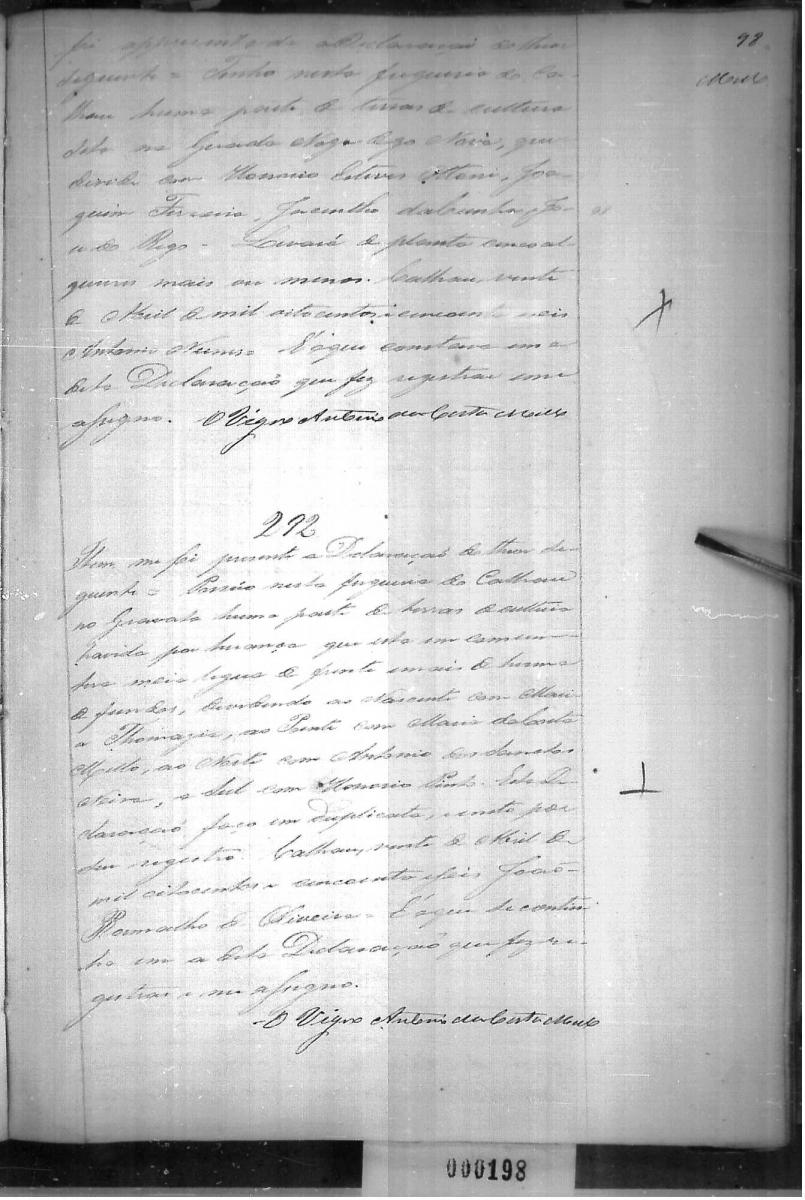 98
foi appresentada a Declaração do theor
seguinte = Tenho nesta freguesia do Ca-
lhau huma parte de terras de cultura
sita na
divide com Honorio Esteves Ottoni, Joa-
quim Ferreira, Jacintho da Cunha, Jo-
se do Rego - Levará de planta cinco al-
queires mais ou menos. Calhau, vinte
de Abril de mil oitocentos e cincoenta e seis
Antonio Nunes = E' o que constava em a
dita Declaração que fiz registrar e me
assigno. O Vigro Antonio da Costa Mello
292
Item me foi presente a Declaração do theor se-
guinte = Possúo nesta freguesia do Calhau
no Gravatá huma parte de terras de cultura
havida por herança que esta em commum
tem meia legua de frente e mais de huma
de fundos, dividindo ao Nascente com Mari-
a Thomazia, ao Poente com Maria da Costa
Mello, ao Norte com Antonio dos Santos
Neiva, e Sul com Honorio Pinto. Esta De-
claração faço em duplicata, e nota por
seu registro. Calhau, vinte de Abril de
mil oitocentos e cincoenta e seis João
Ramalho de Oliveira = E' o que se conti-
nha em a dita Declaração que fiz re-
gistrar e me assigno.
O Vigro Antonio da Costa Mello
000198